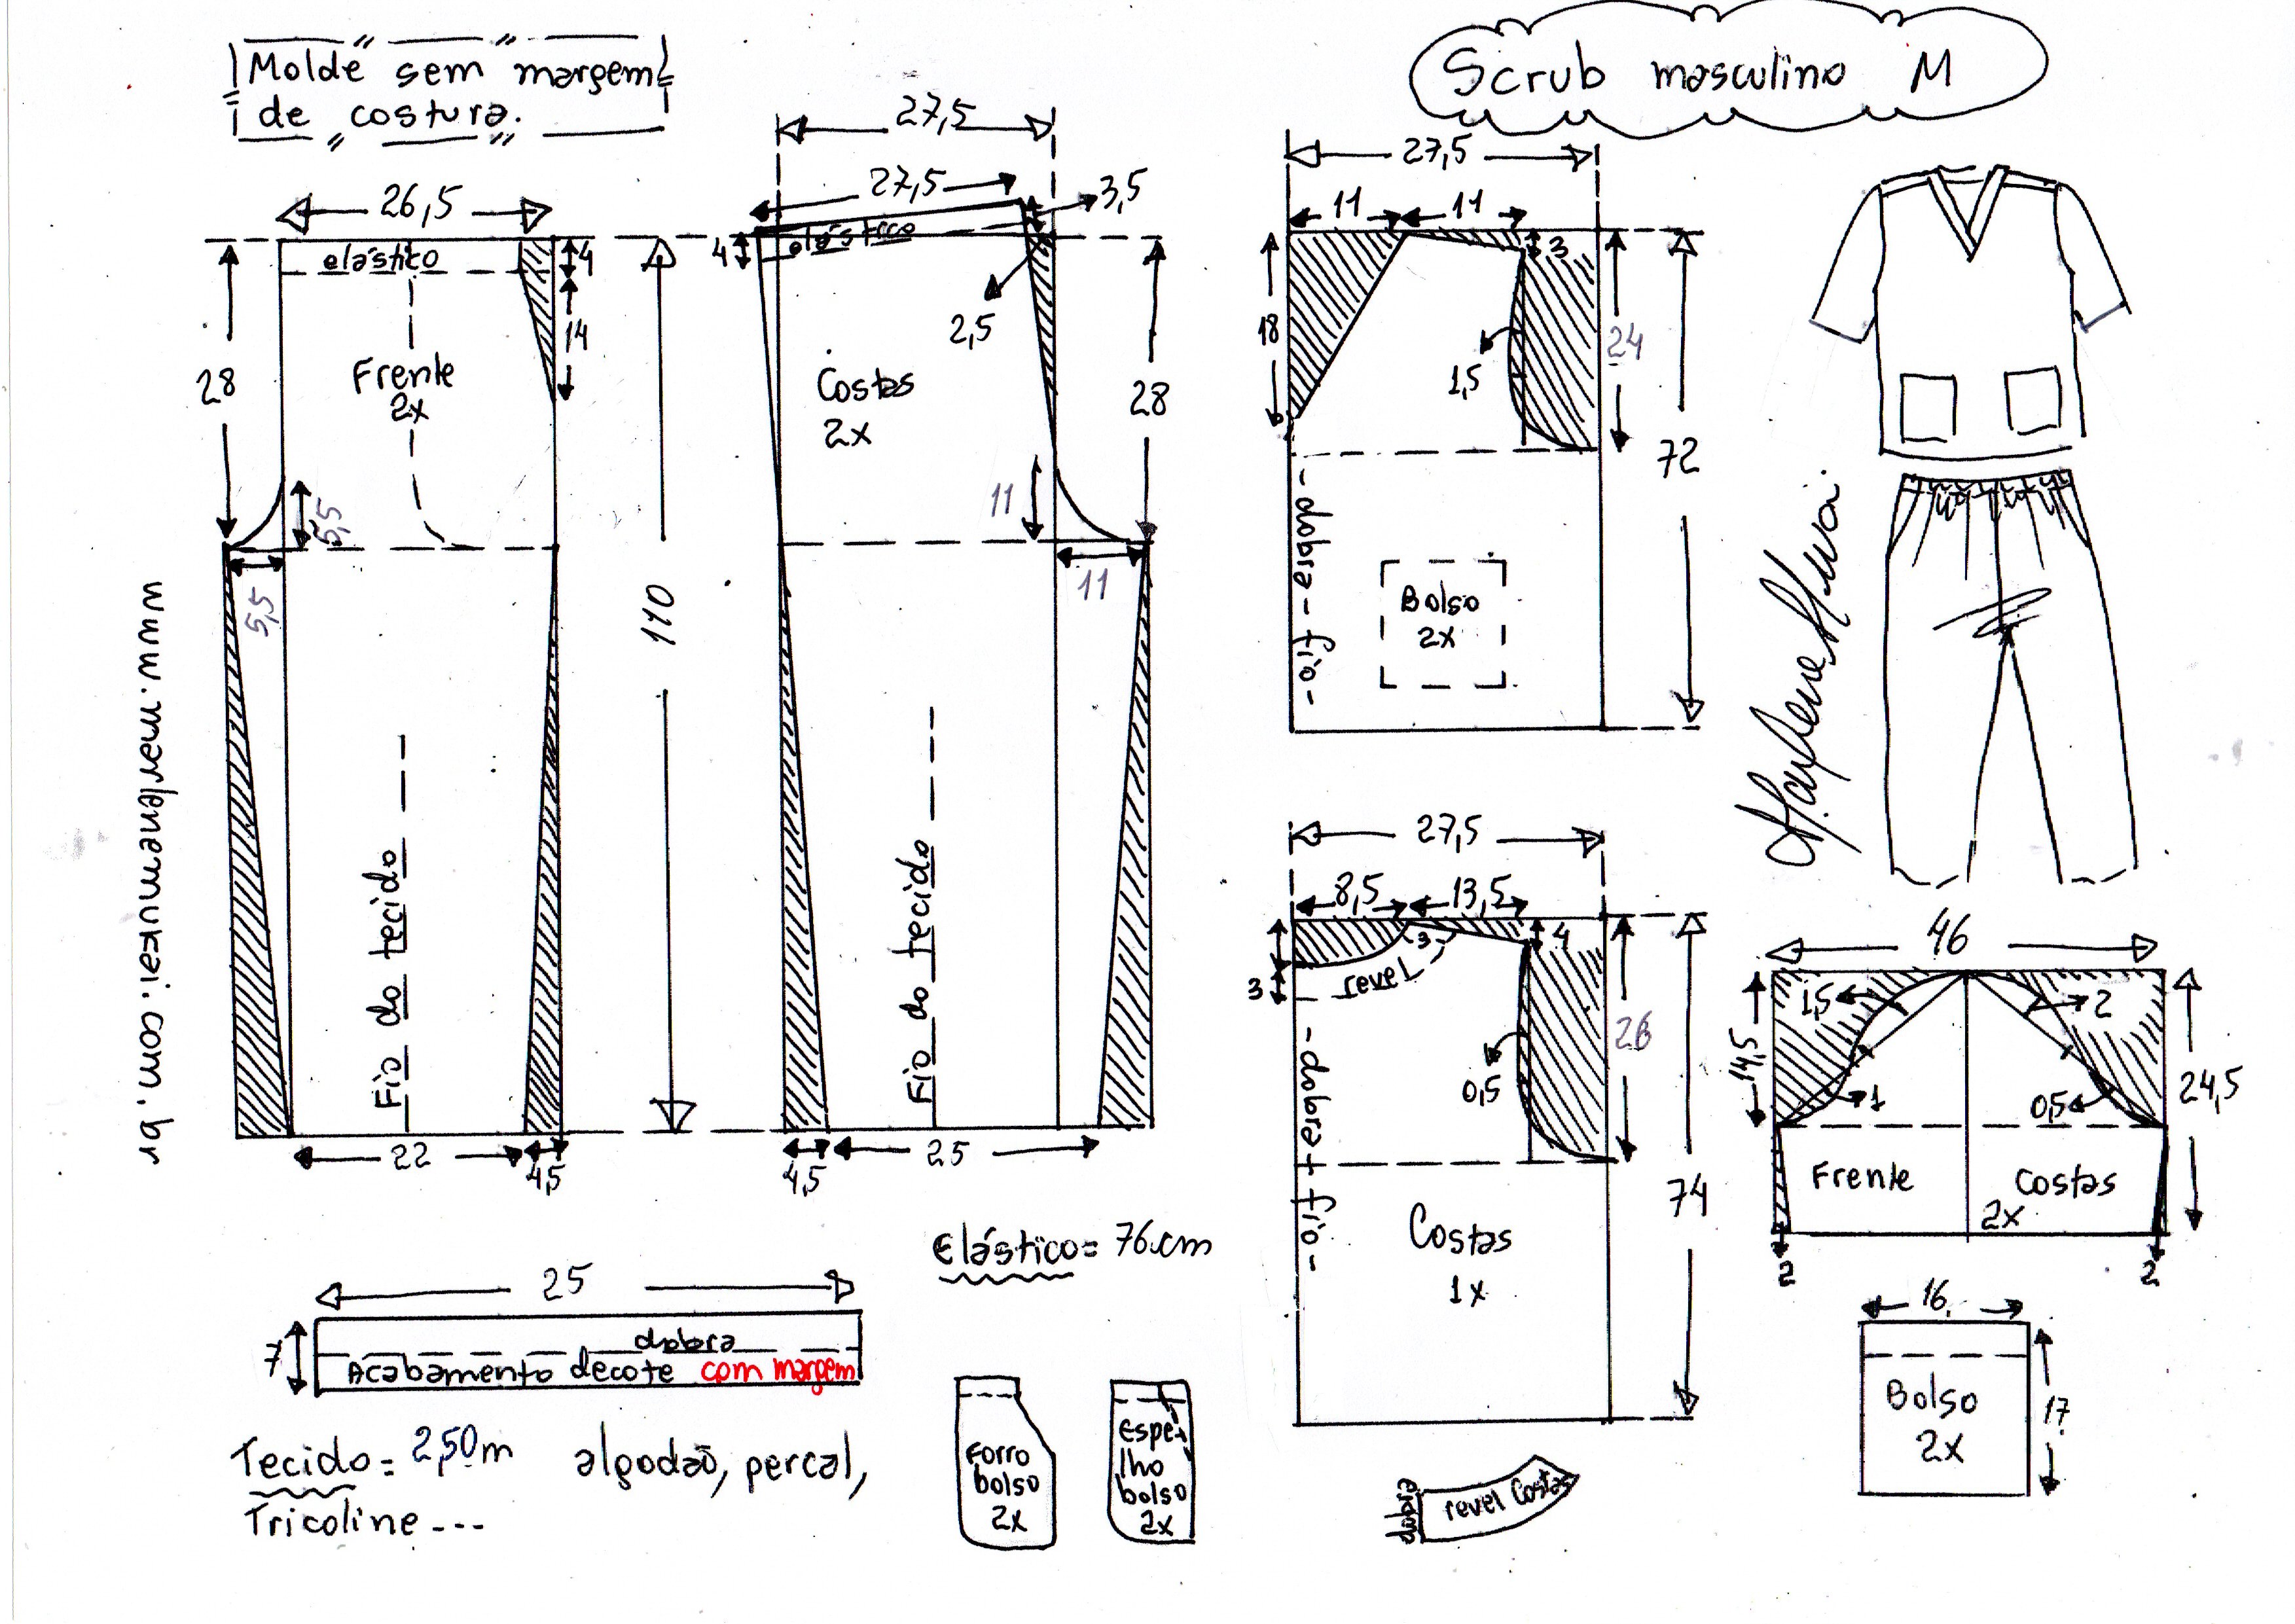 Molde sem margem
de costura.
Scrub masculino M
26,5
elástico
4
14
28
Frente
2x
5,5
5,5
Fio do tecido
22
4,5
110
27,5
27,5
3,5
4
elástico
2,5
Costas
2x
28
11
11
Fio do tecido
4,5
25
27,5
11
11
3
18
1,5
24
72
dobra - fio
Bolso
2x
27,5
8,5
13,5
3
4
revel
3
0,5
26
74
dobra + fio
Costas
1x
46
1,5
2
14,5
24,5
1
0,5
Frente
Costas
2x
2
2
16
Bolso
2x
17
www.marlenemukai.com.br
Marlene Mukai
Elástico= 76cm
25
7
dobra
Acabamento decote com margem
Tecido= 2,50m algodão, percal,
Tricoline ---
Forro
bolso
2x
Espe-
lho
bolso
2x
dobra
revel Costas